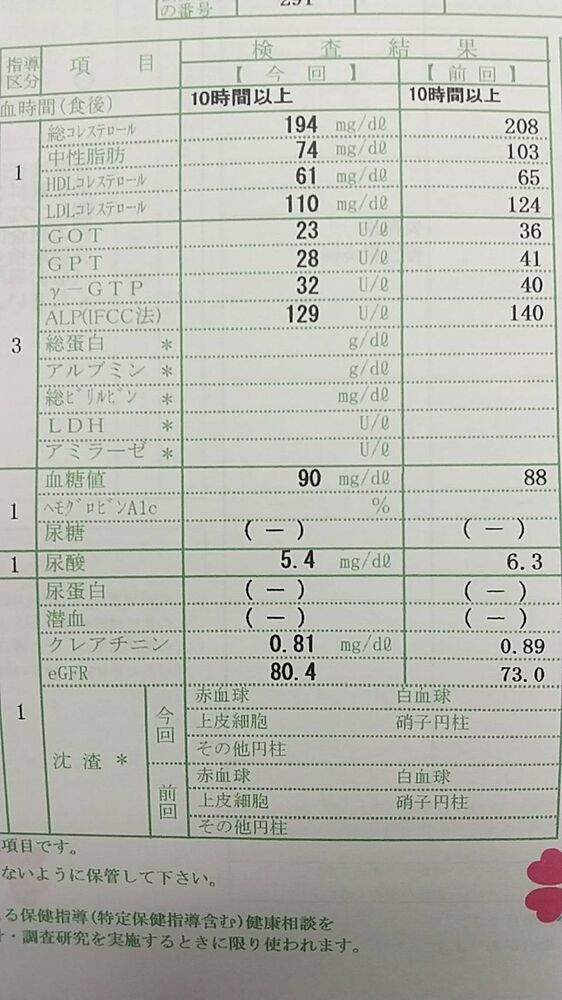 の番号 291
指導区分 項目 検査結果
【今回】 【前回】
血時間(食後) 10時間以上 10時間以上
1 総コレステロール 194 mg/dℓ 208
中性脂肪 74 mg/dℓ 103
HDLコレステロール 61 mg/dℓ 65
LDLコレステロール 110 mg/dℓ 124
3 GOT 23 U/ℓ 36
GPT 28 U/ℓ 41
γ-GTP 32 U/ℓ 40
ALP(IFCC法) 129 U/ℓ 140
総蛋白 * g/dℓ
アルブミン * g/dℓ
総ビリルビン * mg/dℓ
LDH * U/ℓ
アミラーゼ * U/ℓ
1 血糖値 90 mg/dℓ 88
ヘモグロビンA1c %
尿糖 (-) (-)
1 尿酸 5.4 mg/dℓ 6.3
1 尿蛋白 (-) (-)
潜血 (-) (-)
クレアチニン 0.81 mg/dℓ 0.89
eGFR 80.4 73.0
沈渣 * 今回 赤血球 白血球
上皮細胞 硝子円柱
その他円柱
前回 赤血球 白血球
上皮細胞 硝子円柱
その他円柱
項目です。
ないように保管して下さい。
る保健指導(特定保健指導含む)健康相談を
・調査研究を実施するときに限り使われます。